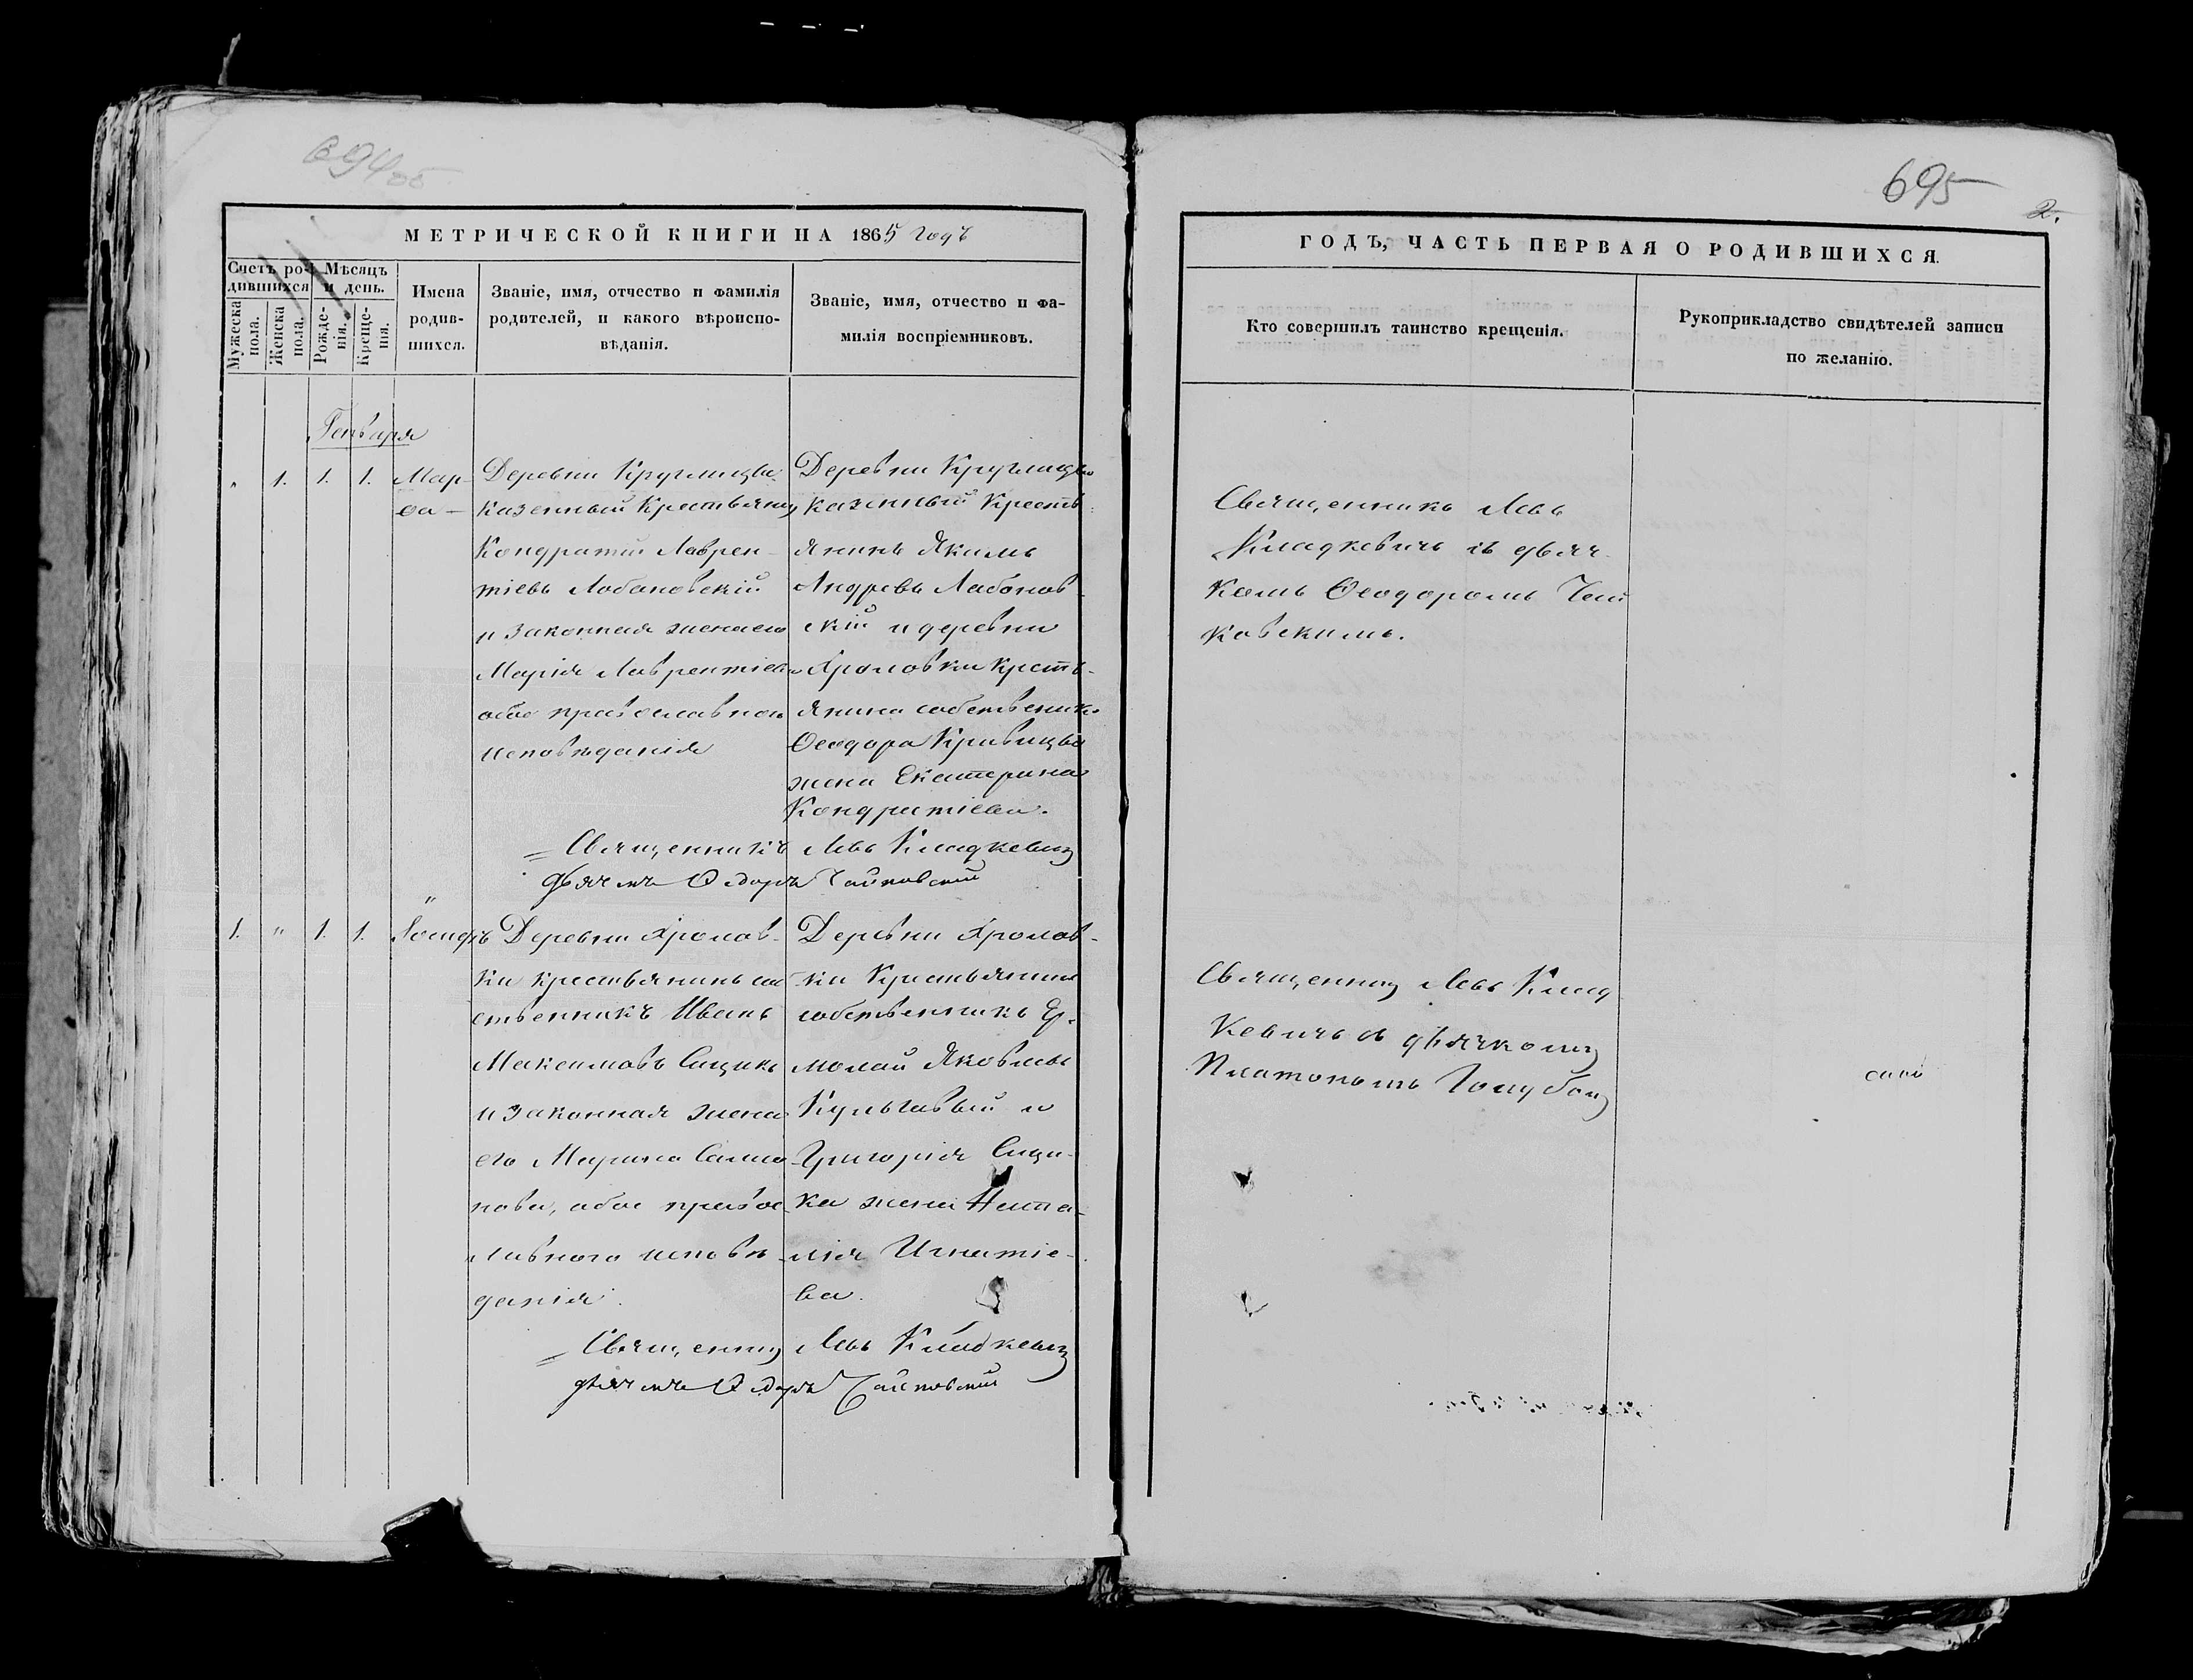 694 об
695
2.
МЕТРИЧЕСКОЙ КНИГИ НА 1865 годъ
Счетъ ро-
дившихся
Мѣсяцъ
и день.
Мужеска
пола.
Женска
пола.
Рожде-
нія.
Креще-
нія.
Имена
родив-
шихся.
Званіе, имя, отчество и фамилія
родителей, и какого вѣроиспо-
вѣданія.
Званіе, имя, отчество и фа-
милія воспріемниковъ.
Генваря
" 1. 1. 1.
Мар-
фа
Деревни
казенный Крестьянинъ
Кондратій Лаврен-
тіевъ Лобановскій
и законная жена его
Марія Лаврентіева
обое православнаго
исповѣданія
Деревни
казенный Кресть-
янинъ Якимъ
Андреевъ Лабонов-
скій и деревни
Хроловки кресть-
янина собственника
Феодора Кривицка
жена Екатерина
Кондратіева.
Священникъ Левъ Кладкевичъ
дьячекъ Федоръ Чайковскій
1. " 1. 1.
Деревни Хролов-
ки крестьянинъ соб
ственникъ Иванъ
Максимовъ Сицикъ
и законная жена
его Марина Самсо
нова, обое правос
лавного исповѣ
данія.
Деревни Хролов-
ки Крестьянинъ
собственникъ Ер-
молай Яковлевъ
Кульгавый и
Григорія Сици-
ка жена Ната-
лія Игнатіе-
ва.
Священникъ Левъ Кладкевичъ
дьячекъ Федоръ Чайковскій
ГОДЪ, ЧАСТЬ ПЕРВАЯ О РОДИВШИХСЯ.
Кто совершилъ таинство крещенія.
Рукоприкладство свидѣтелей записи
по желанію.
Священникъ Левъ
Кладкевичъ съ дьяч-
комъ Феодоромъ Чай
ковскимъ.
Священникъ Левъ Клад
кевичъ съ дьячкомъ
Платономъ